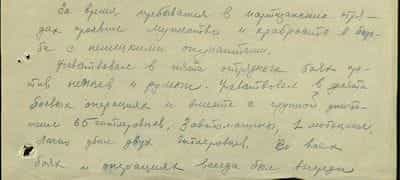 За время пребывания в партизанских отря-
дах проявил мужество и храбрость в борь-
бе с немецкими оккупантами.
Участвовал в пяти открытых боях про-
тив немцев и румын. Участвовал в девяти
боевых операциях и вместе с группой унич-
тожил 65 гитлеровцев, 3 автомашины, 1 мотоцикл,
Лично убил двух гитлеровцев. Во всех
боях и операциях всегда был впереди